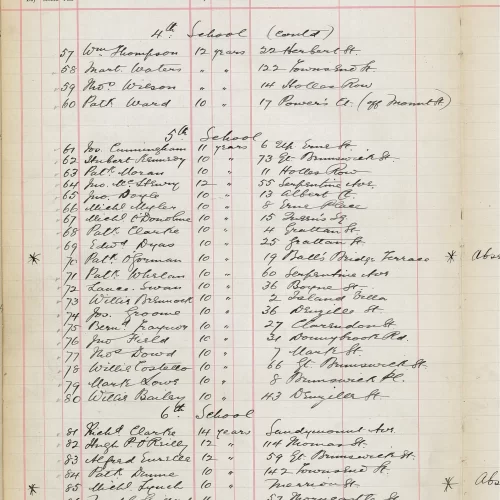 4th School (contd)
57 Wm. Thompson 12 years 22 Herbert St.
58 Mart. Waters " " 122 Townsend St.
59 Thos. Wilson " " 14 Holles Row
60 Patk. Ward 10 " 17 Power's Ct. (off Mount St)
5th School
61 Jos. Cunningham 11 years 6 Up. Erne St.
62 Hubert 10 " 73 Gt. Brunswick St.
63 Patk. Moran 10 " 11 Holles Row
64 Jno. 12 " 55 Serpentine Ave.
65 Jno. Doyle 10 " 13 Albert
66 Michl. 10 " 8 Erne Place
67 Michl. O'Donohoe 10 " 15 Queen's Sq
68 Patk. Clarke 10 " 4 Grattan St.
69 Edwd. Dyas 10 " 25 Grattan St.
* 70 Patk. O'Gorman 10 " 19 Balls Bridge Terrace * Abs
71 Patk. Whelan 10 " 60 Serpentine Ave
72 Lauce. Swan 10 " 36 Boyne St.
73 Willie 10 " 2 Island Villa
74 Jos. Groome 10 " 36 Denzille St.
75 Bernd. Traynor 10 " 27 Clarendon St
76 Jno Field 10 " 31 Donnybrook Rd.
77 Thos Dowd 10 " 7 Mark St.
78 Willie Costello 10 " 66 Gt. Brunswick St.
79 Mark Lowe 10 " 8 Brunswick Pl.
80 Willie Bailey 10 " 43 Denzille St.
6th School
81 Richd. Clarke 14 years Sandymount Ave.
82 Hugh P. O'Reilly 12 " 114 Thomas St.
83 Alfred 12 " 59 Gt. Brunswick St.
84 Patk. Dunne 10 " 142 Townsend St.
* 85 Michl. Lynch 10 " Merrion St. * Abs